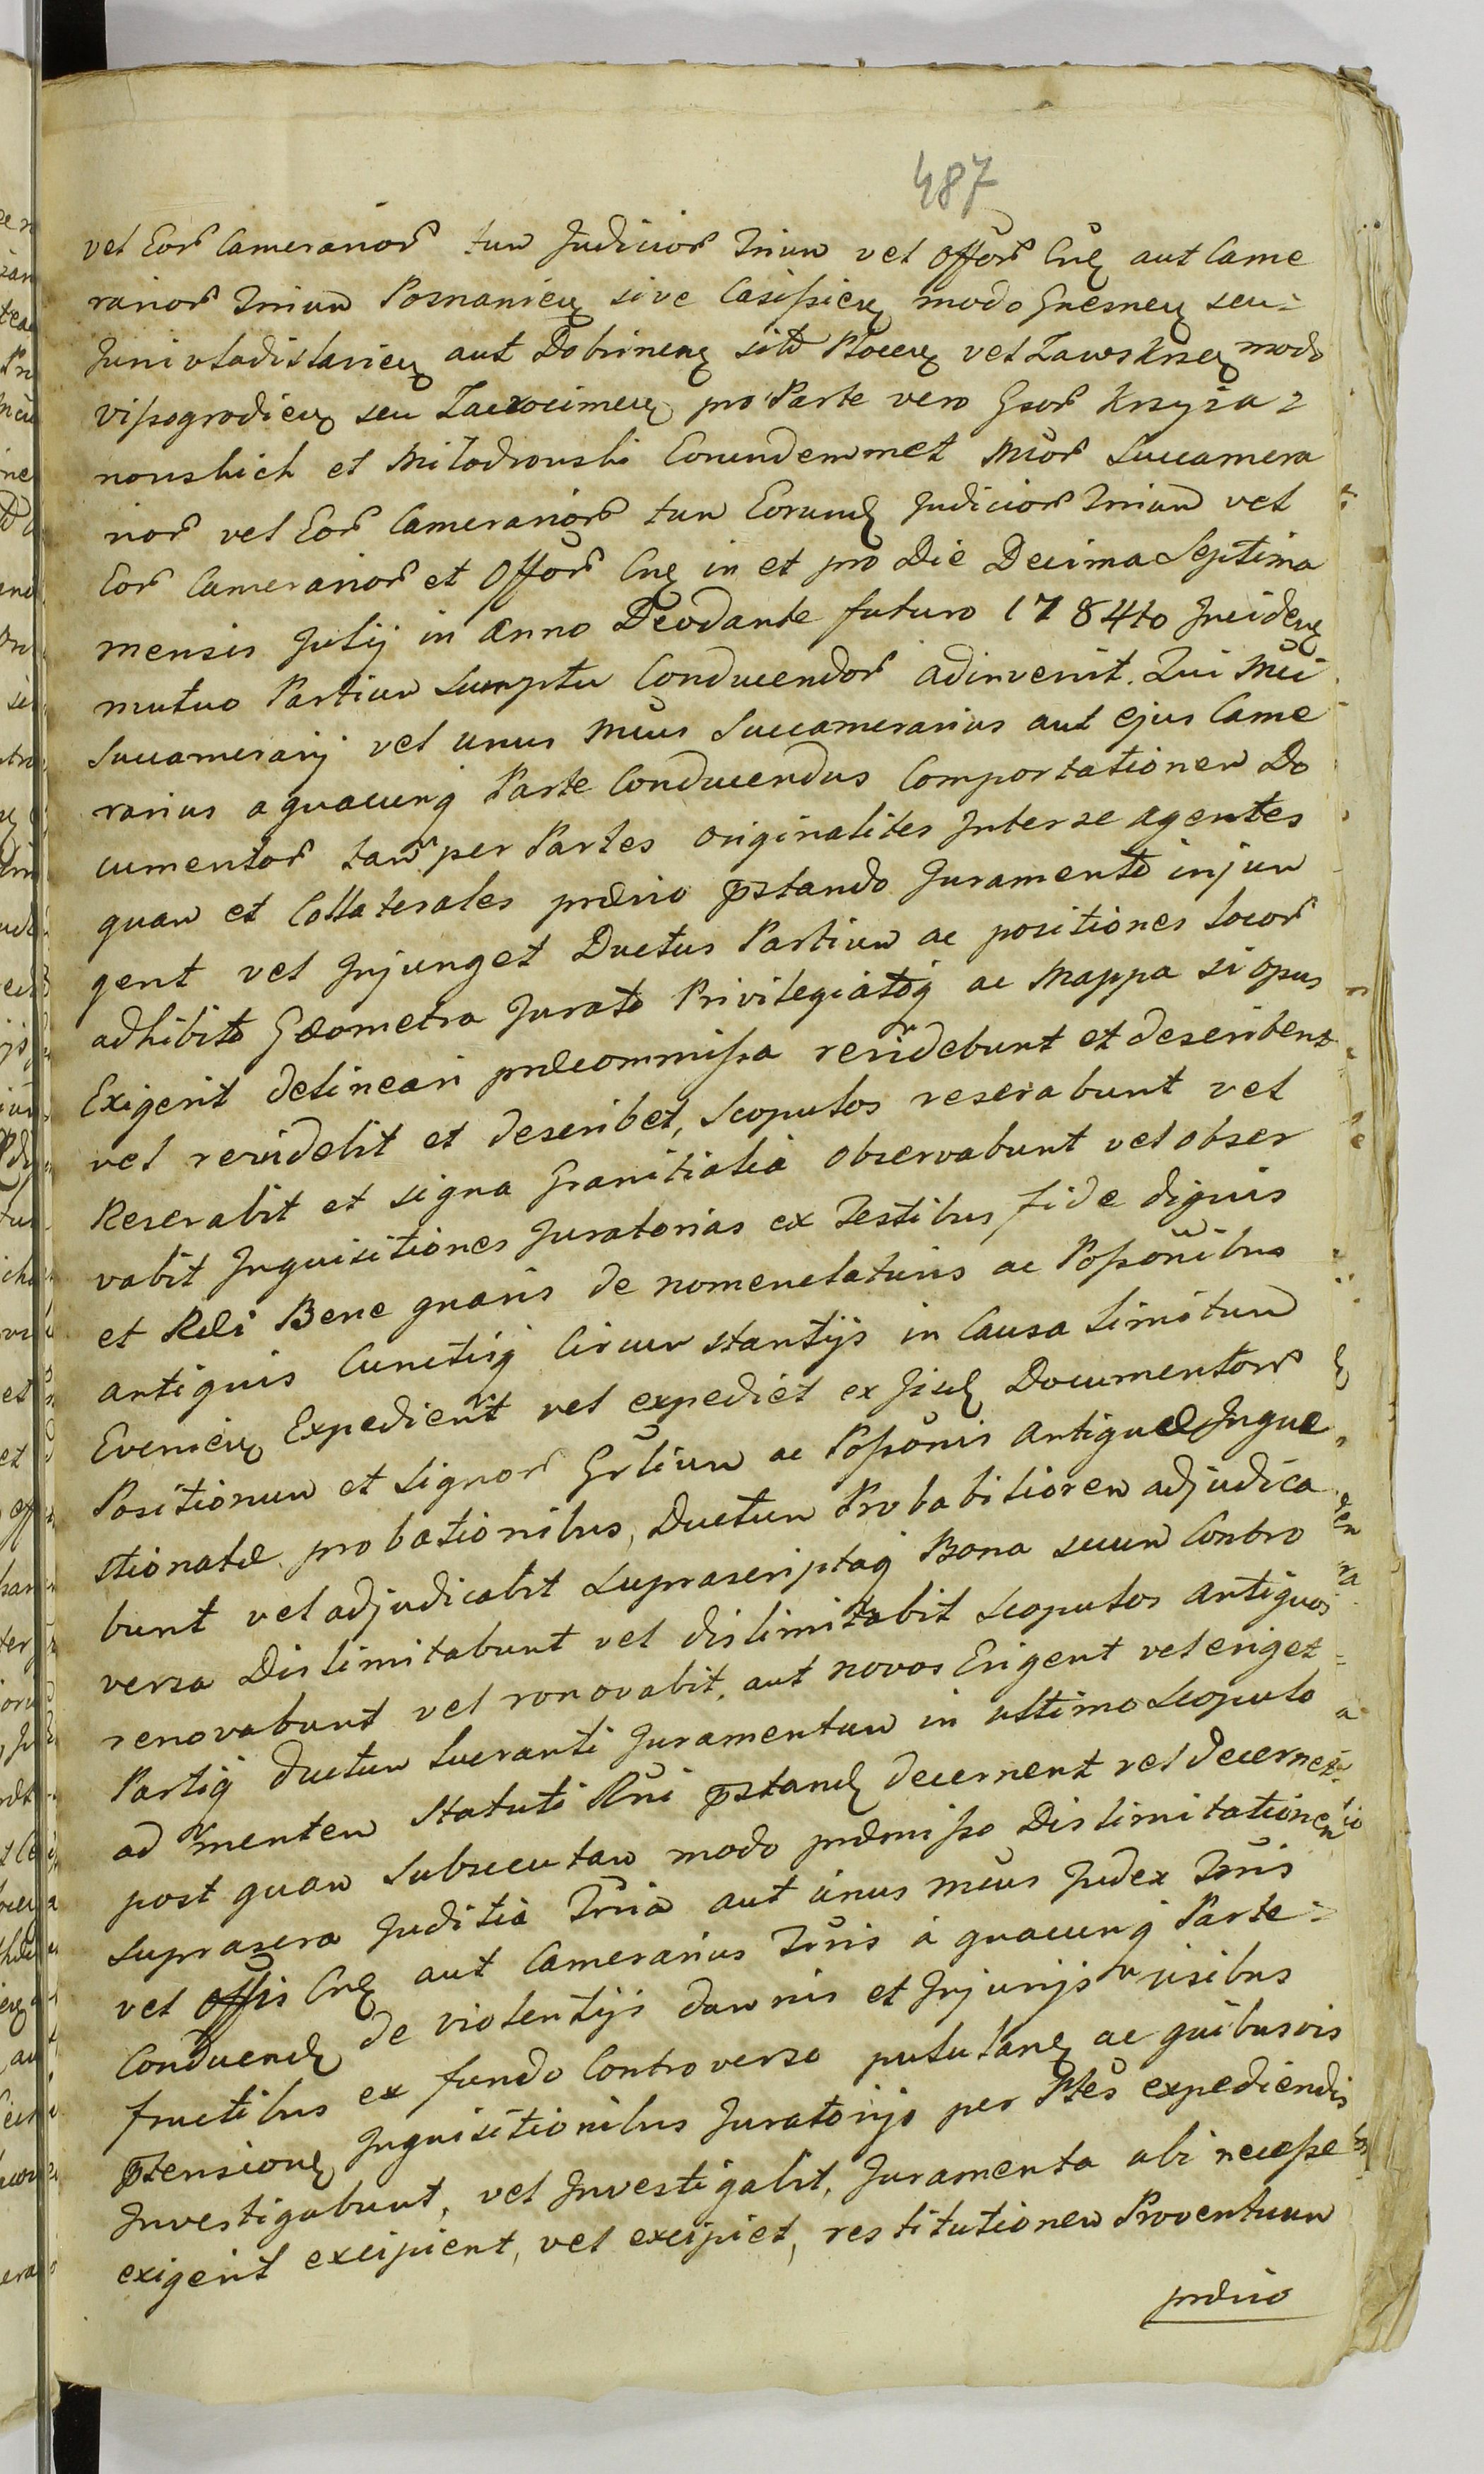 487
vel Eor Cameranior tum Judicior Trium vel Offor Cne aut Came
ranior Trium Posnanien sive Calissien modo Gnesnen seu
Junivladislavien aut Dobrinen sitd Plocen vel Zawskrzen modo
vissogrodien seu Zacrocimen pro Parte vero Gsor Krzyza
nowskich et Milodrowski Eorundemmet Mior Succamera
rior vel Eor Camerarior tum Eorund Judicior Trium vel
Eor Camerarior et Offor Cne in et pro Die Decima Septima
mensis Julij in Anno Deodante futuro 1784to Inciden
mutuo Partium sumptu Conducendor adinvenit. Qui Mci
Succamerarij vel unus Mcus Succamerarius aut ejus Came
rarius a quacunq Parte Conducendus Comportationem Do
cumentor tam per Partes originaliter Inter se agentes
quam et Collaterales prævio pstando Juramento injun
gent vel Injunget Ductus Partium ac positiones locor
adhibito Geometra Jurato Privilegiatoq ac Mappa si opus
Exigerit delineari præcommissa revidebunt et describent
vel revidebit et describet, Scopulos reserabunt vel
Reserabit et signa Granitialia observabunt vel obser
vabit Inquisitiones Juratorias ex Testibus, fide dignis
et Rei Bene gnaris de nomenclaturis ac Possonibus
antiquis Cunctisq Circumstantijs in Causa limitum
Evenien Expedient vel expediet ex Iisd Documentor
Positionum et Signor Grlium ac Possonis antiquæ Inqui
stionatæ probationibus, Ductum Probabiliorem adjudica
bunt vel adjudicabit Suprascriptaq Bona secum Contro
versa Dislimitabunt vel dislimitabit Scopulos antiquos
renovabunt vel ronovabit, aut novos Erigent vel eriget
Partiq ductum lucranti Juramentum in ultimo Scopulo
ad mentem Statuti Rni pstand decernent vel decernet
post quam Subsecutam modo præmisso Dislimitationem
suprasera Juditia Tria aut unus Mcus Judex Tris
vel Offis Cne aut Camerarius Tris a quacunq Parte
Conducend de violentijs damnis et Injurijs visibus
fructibus ex fundo Controverso pululan ac quibusvis
ptension Inquisitionibus Juratorijs per Ptes expediendis
Investigabunt, vel Investigabit, Juramenta ubi necesse
exigerit excipient, vel excipiet, restitutionem Proventuum
prævio